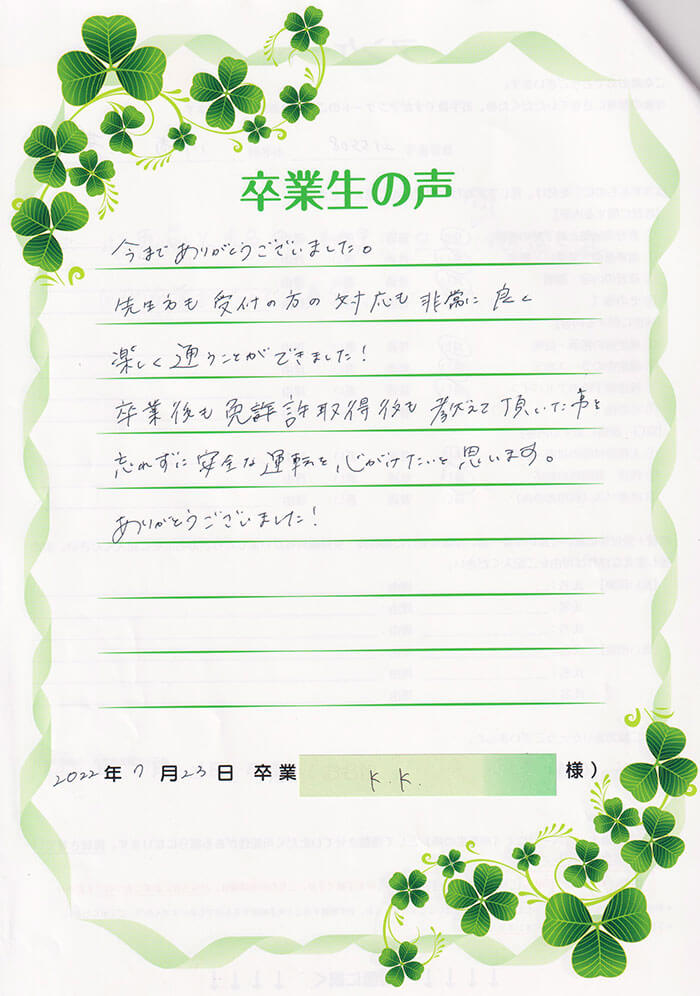 卒業生の声
今までありがとうございました。
先生方も受付の方の対応も非常に良く
楽しく通うことができました!
卒業後も免許許取得後も教えて頂いた事を
忘れずに安全な運転を心がけたいと思います。
ありがとうございました!
2022年7月23日 卒業 K.K. 様)